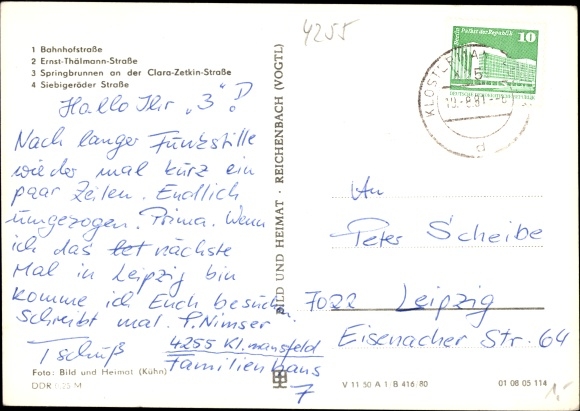 4255
1 Bahnhofstraße
2 Ernst-Thälmann-Straße
3 Springbrunnen an der Clara-Zetkin-Straße
4 Siebigeröder Straße
Hallo Ihr "3"!
Nach langer Funkstille
wieder mal kurz ein
paar Zeilen. Endlich
umgezogen. Prima. Wenn
ich das nächste
Mal in Leipzig bin
komme ich Euch besuchen.
Schreibt mal. P. Nimser
Tschüß
4255 Kl.mansfeld
Familienhaus
7
Foto: Bild und Heimat (Kühn)
DDR
BILD UND HEIMAT · REICHENBACH (VOGTL)
Berlin Palast der Republik
10
An
Peter Scheibe
7022 Leipzig
Eisenacher Str. 64
V 11 50 A 1 B 416/80
01 08 05 114